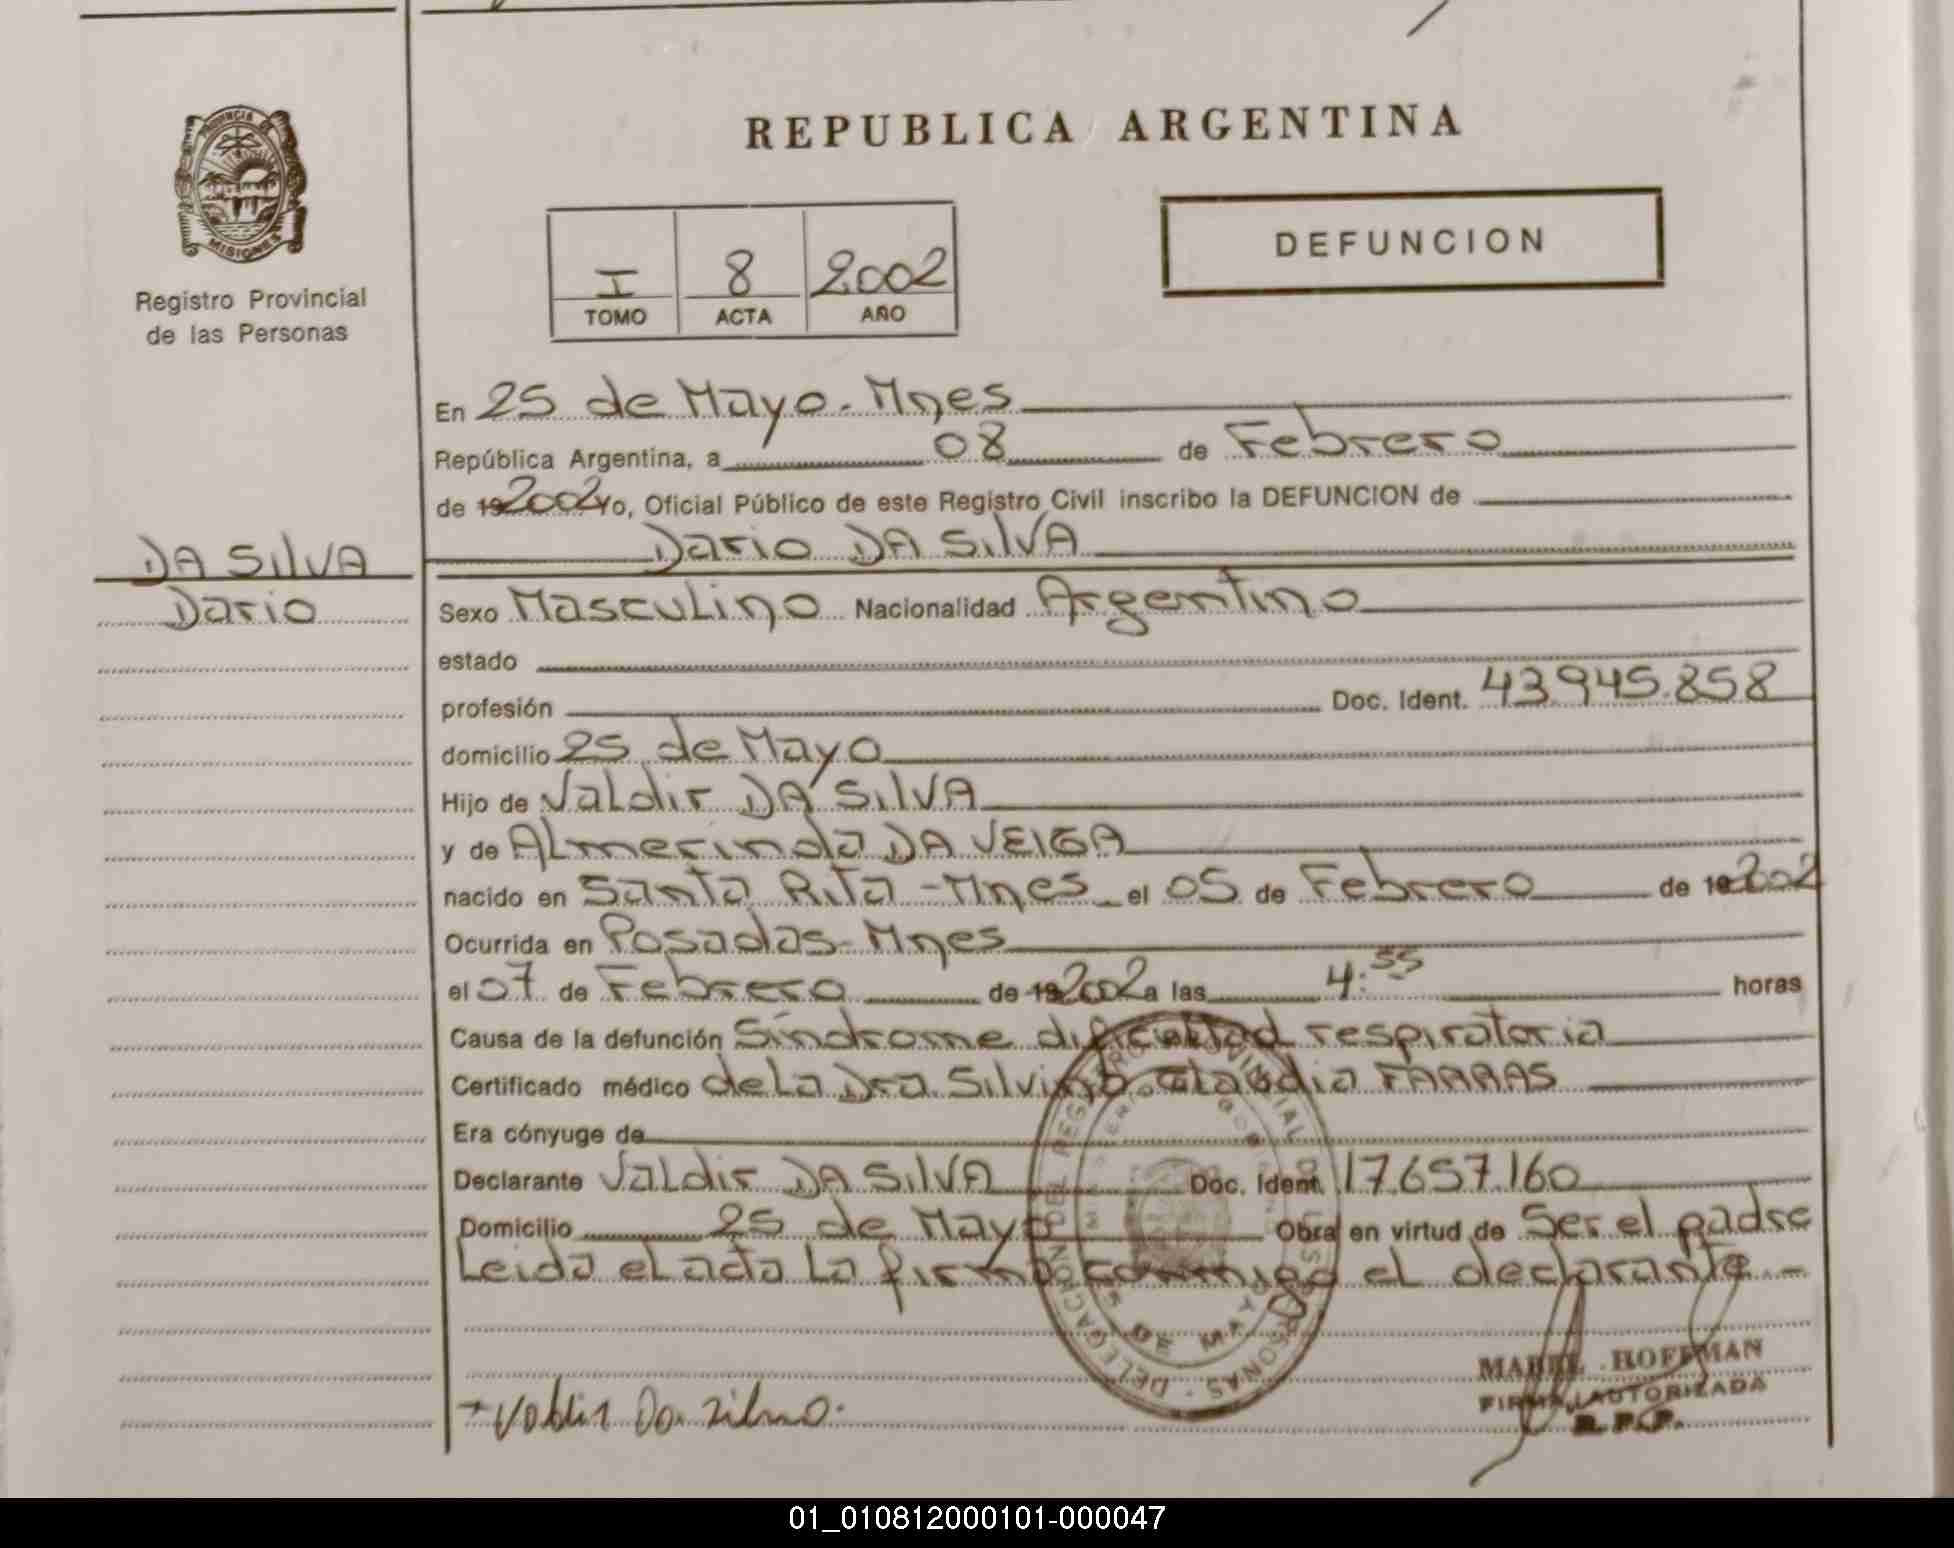 REPUBLICA ARGENTINA
PROVINCIA DE
MISIONES
Registro Provincial
de las Personas
I 8 2002
TOMO ACTA AÑO
DEFUNCION
En 25 de Mayo - Mnes
República Argentina, a 08 de Febrero
de 19 2002 Yo, Oficial Público de este Registro Civil inscribo la DEFUNCION de
Dario DA SILVA
DA SILVA
Dario
Sexo Masculino Nacionalidad Argentino
estado
profesión Doc. Ident. 43.945.858
domicilio 25 de Mayo
Hijo de Valdir DA SILVA
y de Almerinda DA VEIGA
nacido en Santa Rita - Mnes el 05 de Febrero de 19 2002
Ocurrida en Posadas - Mnes
el 07 de Febrero de 19 2002 a las 4:55 horas
Causa de la defunción Síndrome dificultad respiratoria
Certificado médico de La Dra. Silvina Claudia FARRAS
Era cónyuge de
Declarante Valdir DA SILVA Doc. Ident. 17.657.160
Domicilio 25 de Mayo Obra en virtud de Ser el padre
Leida el acta La firma conmigo el declarante -
DELEGACION DEL REGISTRO PROVINCIAL DE LAS PERSONAS
25 DE MAYO
MABEL HOFFMAN
FIRMA AUTORIZADA
R. P. P.
Valdir Da silva.
01_010812000101-000047